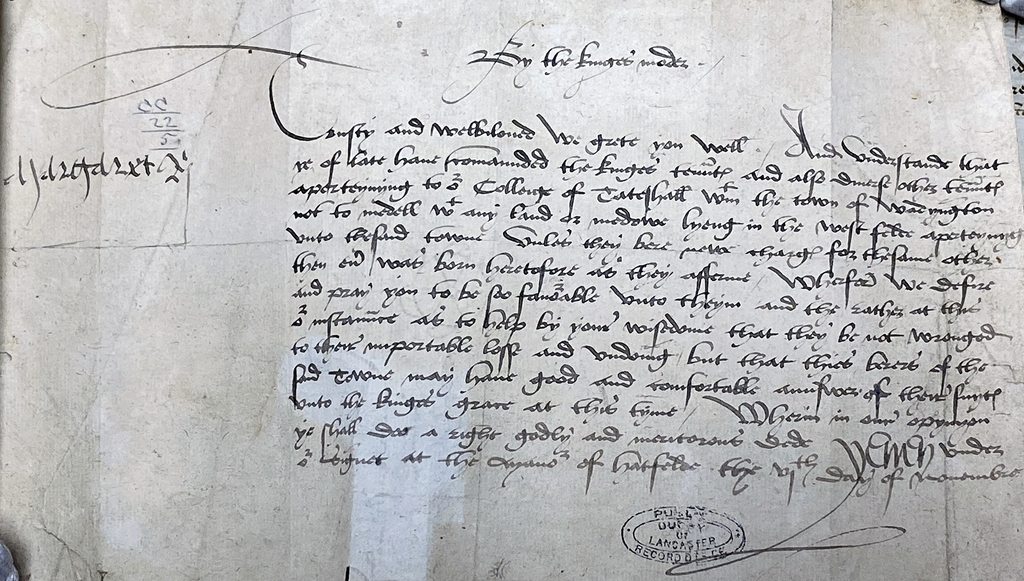 By the kinges moder
CC
22
5
Margaret R
Trusty and welbiloved We grete you well And Understande that
ye of late have comaunded the kinges tenntes and also diverse other tenntes
aperteynyng to or Colleige of Tateshall wtin the town of Wadyngton
not to medell wt any land or medowe lyeng in the west felde aperteynyng
unto thesaid towne Unles they bere newe charges for thesame other
then ever was born heretofore as they afferme Wherfore We desire
and pray you to be soo favorable unto theym and the rather at this
or instaunce as to help by your wisedome that they be not wronged
to their importable losse and undoing but that thies berers of the
said Towne may have good and comfortable aunswer of their suytes
unto the kinges grace at this tyme Wherin in our oppynyon
ye shall doo a right godly and meritorous dede Yeven under
or signet at the Manor of hatfelde the vjth day of Novembre
PUBLIC
DUCHY
OF
LANCASTER
RECORD OFFICE